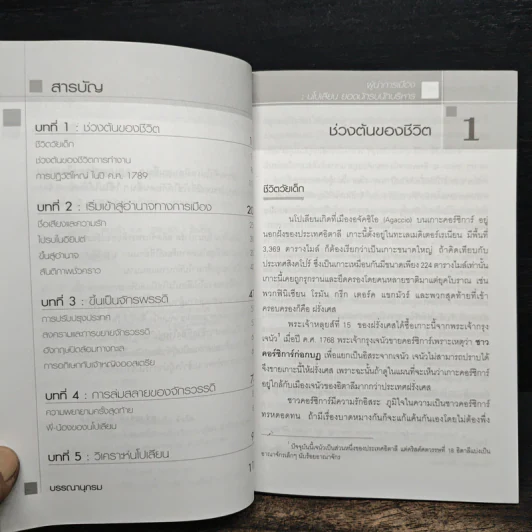 สารบัญ
บทที่ 1 : ช่วงต้นของชีวิต
ชีวิตวัยเด็ก
ช่วงต้นของชีวิตการทำงาน
การปฏิวัติใหญ่ ในปี ค.ศ. 1789
บทที่ 2 : เริ่มเข้าสู่อำนาจทางการเมือง
ชื่อเสียงและความรัก
ไปรบในอียิปต์
ขึ้นสู่อำนาจ
สันติภาพชั่วคราว
บทที่ 3 : ขึ้นเป็นจักรพรรดิ
การปรับปรุงประเทศ
สงครามและการขยายจักรวรรดิ
อังกฤษปิดล้อมทางทะเล
การอภิเษกกับเจ้าหญิงออสเตรีย
บทที่ 4 : การล่มสลายของจักรวรรดิ
ความพยายามครั้งสุดท้าย
พี่-น้องของนโปเลียน
บทที่ 5 : วิเคราะห์นโปเลียน
บรรณานุกรม
: นโปเลียน ยอดนักรบนักบริหาร
ช่วงต้นของชีวิต 1
ชีวิตวัยเด็ก
นโปเลียนเกิดที่เมืองอจัคซิโอ (Agaccio) บนเกาะคอร์ซิการ์ อยู่
นอกฝั่งของประเทศอิตาลี เกาะนี้ตั้งอยู่ในทะเลเมดิเตอร์เรเนียน มีพื้นที่
3,369 ตารางไมล์ ก็ต้องเรียกว่าเป็นเกาะขนาดใหญ่ ถ้าคิดเทียบกับ
ประเทศสิงคโปร์ ซึ่งเป็นเกาะเหมือนกันมีขนาดเพียง 224 ตารางไมล์เท่านั้น
เกาะนี้เคยถูกรุกรานและยึดครองโดยคนหลายชาติมาแต่ยุคโบราณ เช่น
พวกฟินิเชียน โรมัน กรีก เตอร์ค แขกมัวร์ และพวกสุดท้ายที่เข้า
ครอบครองก็คือ ฝรั่งเศส
พระเจ้าหลุยส์ที่ 15 ของฝรั่งเศสได้ซื้อเกาะนี้จากพระเจ้ากรุง
เจนัว¹ เมื่อปี ค.ศ. 1768 พระเจ้ากรุงเจนัวขายคอร์ซิการ์เพราะเหตุว่า ชาว
คอร์ซิการ์ก่อกบฏ เพื่อแยกเป็นอิสระจากเจนัว เจนัวไม่สามารถปราบได้
จึงขายเกาะนี้ให้ฝรั่งเศส เพราะฉะนั้นถ้าดูในแผนที่จะเห็นว่าเกาะคอร์ซิการ์
อยู่ใกล้กับเมืองเจนัวของอิตาลีมากกว่าประเทศฝรั่งเศส
ชาวคอร์ซิการ์มีความรักอิสระ ภูมิใจในความเป็นชาวคอร์ซิการ์
ทรหดอดทน ถ้ามีเรื่องบาดหมางกันก็จะแก้แค้นกันเองโดยไม่ต้องพึ่ง
¹ ปัจจุบันนี้เจนัวเป็นส่วนหนึ่งของประเทศอิตาลี แต่คริสต์ศตวรรษที่ 18 อิตาลีแบ่งเป็น
อาณาจักรเล็กๆ นับร้อยอาณาจักร